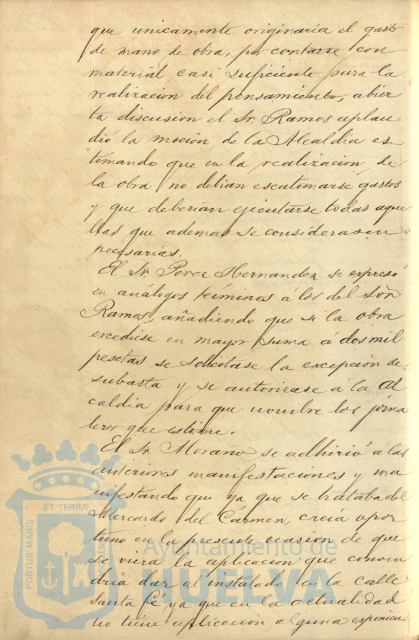 que unicamente originaria el gasto
de mano de obra, por contarse con
material casi suficiente para la
realizacion del pensamiento, abier
ta discusion el Sr Ramos aplau
dió la mocion de la Alcaldia es
timando que en la realizacion de
la obra no debian escatimarse gastos
y que deberian ejecutarse todas aque
llas que ademas se considerasen
necesarias.
El Sr Perez Hernandez se expresó
en análogos términos á los del Sõr
Ramos, añadiendo que si la obra
excediese en mayor suma á dos mil
pesetas se solicitase la excepcion de
subasta y se autorizase á la Al
caldia para que nombre los jorna
leros que estime.
El Sr Morano se adhirió á las
anteriores manifestaciones y ma
nifestando que ya que se trataba del
Mercado del Carmen, creia opor
tuno en la presente ocasion de que
se viera la aplicacion que conven
dria dar al instalado en la calle
Santa Fé ya que en la actualidad
no tiene aplicacion á
PORTUS MARIS
ET TERRÆ
Ayuntamiento de
HUELVA